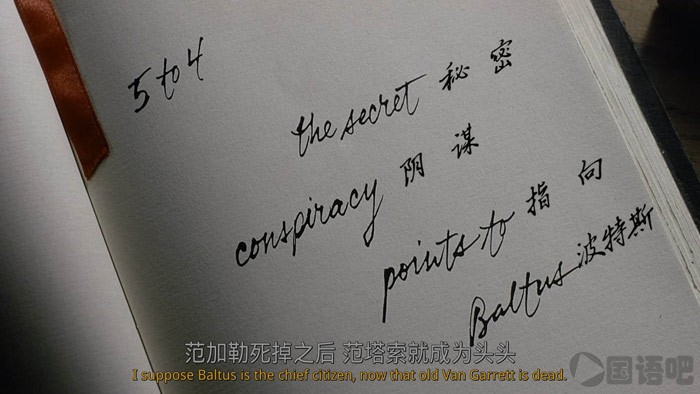 5 to 4
the secret 秘密
conspiracy 阴谋
points to 指向
Baltus 波特斯
范加勒死掉之后 范塔索就成为头头
I suppose Baltus is the chief citizen, now that old Van Garrett is dead.
国语吧